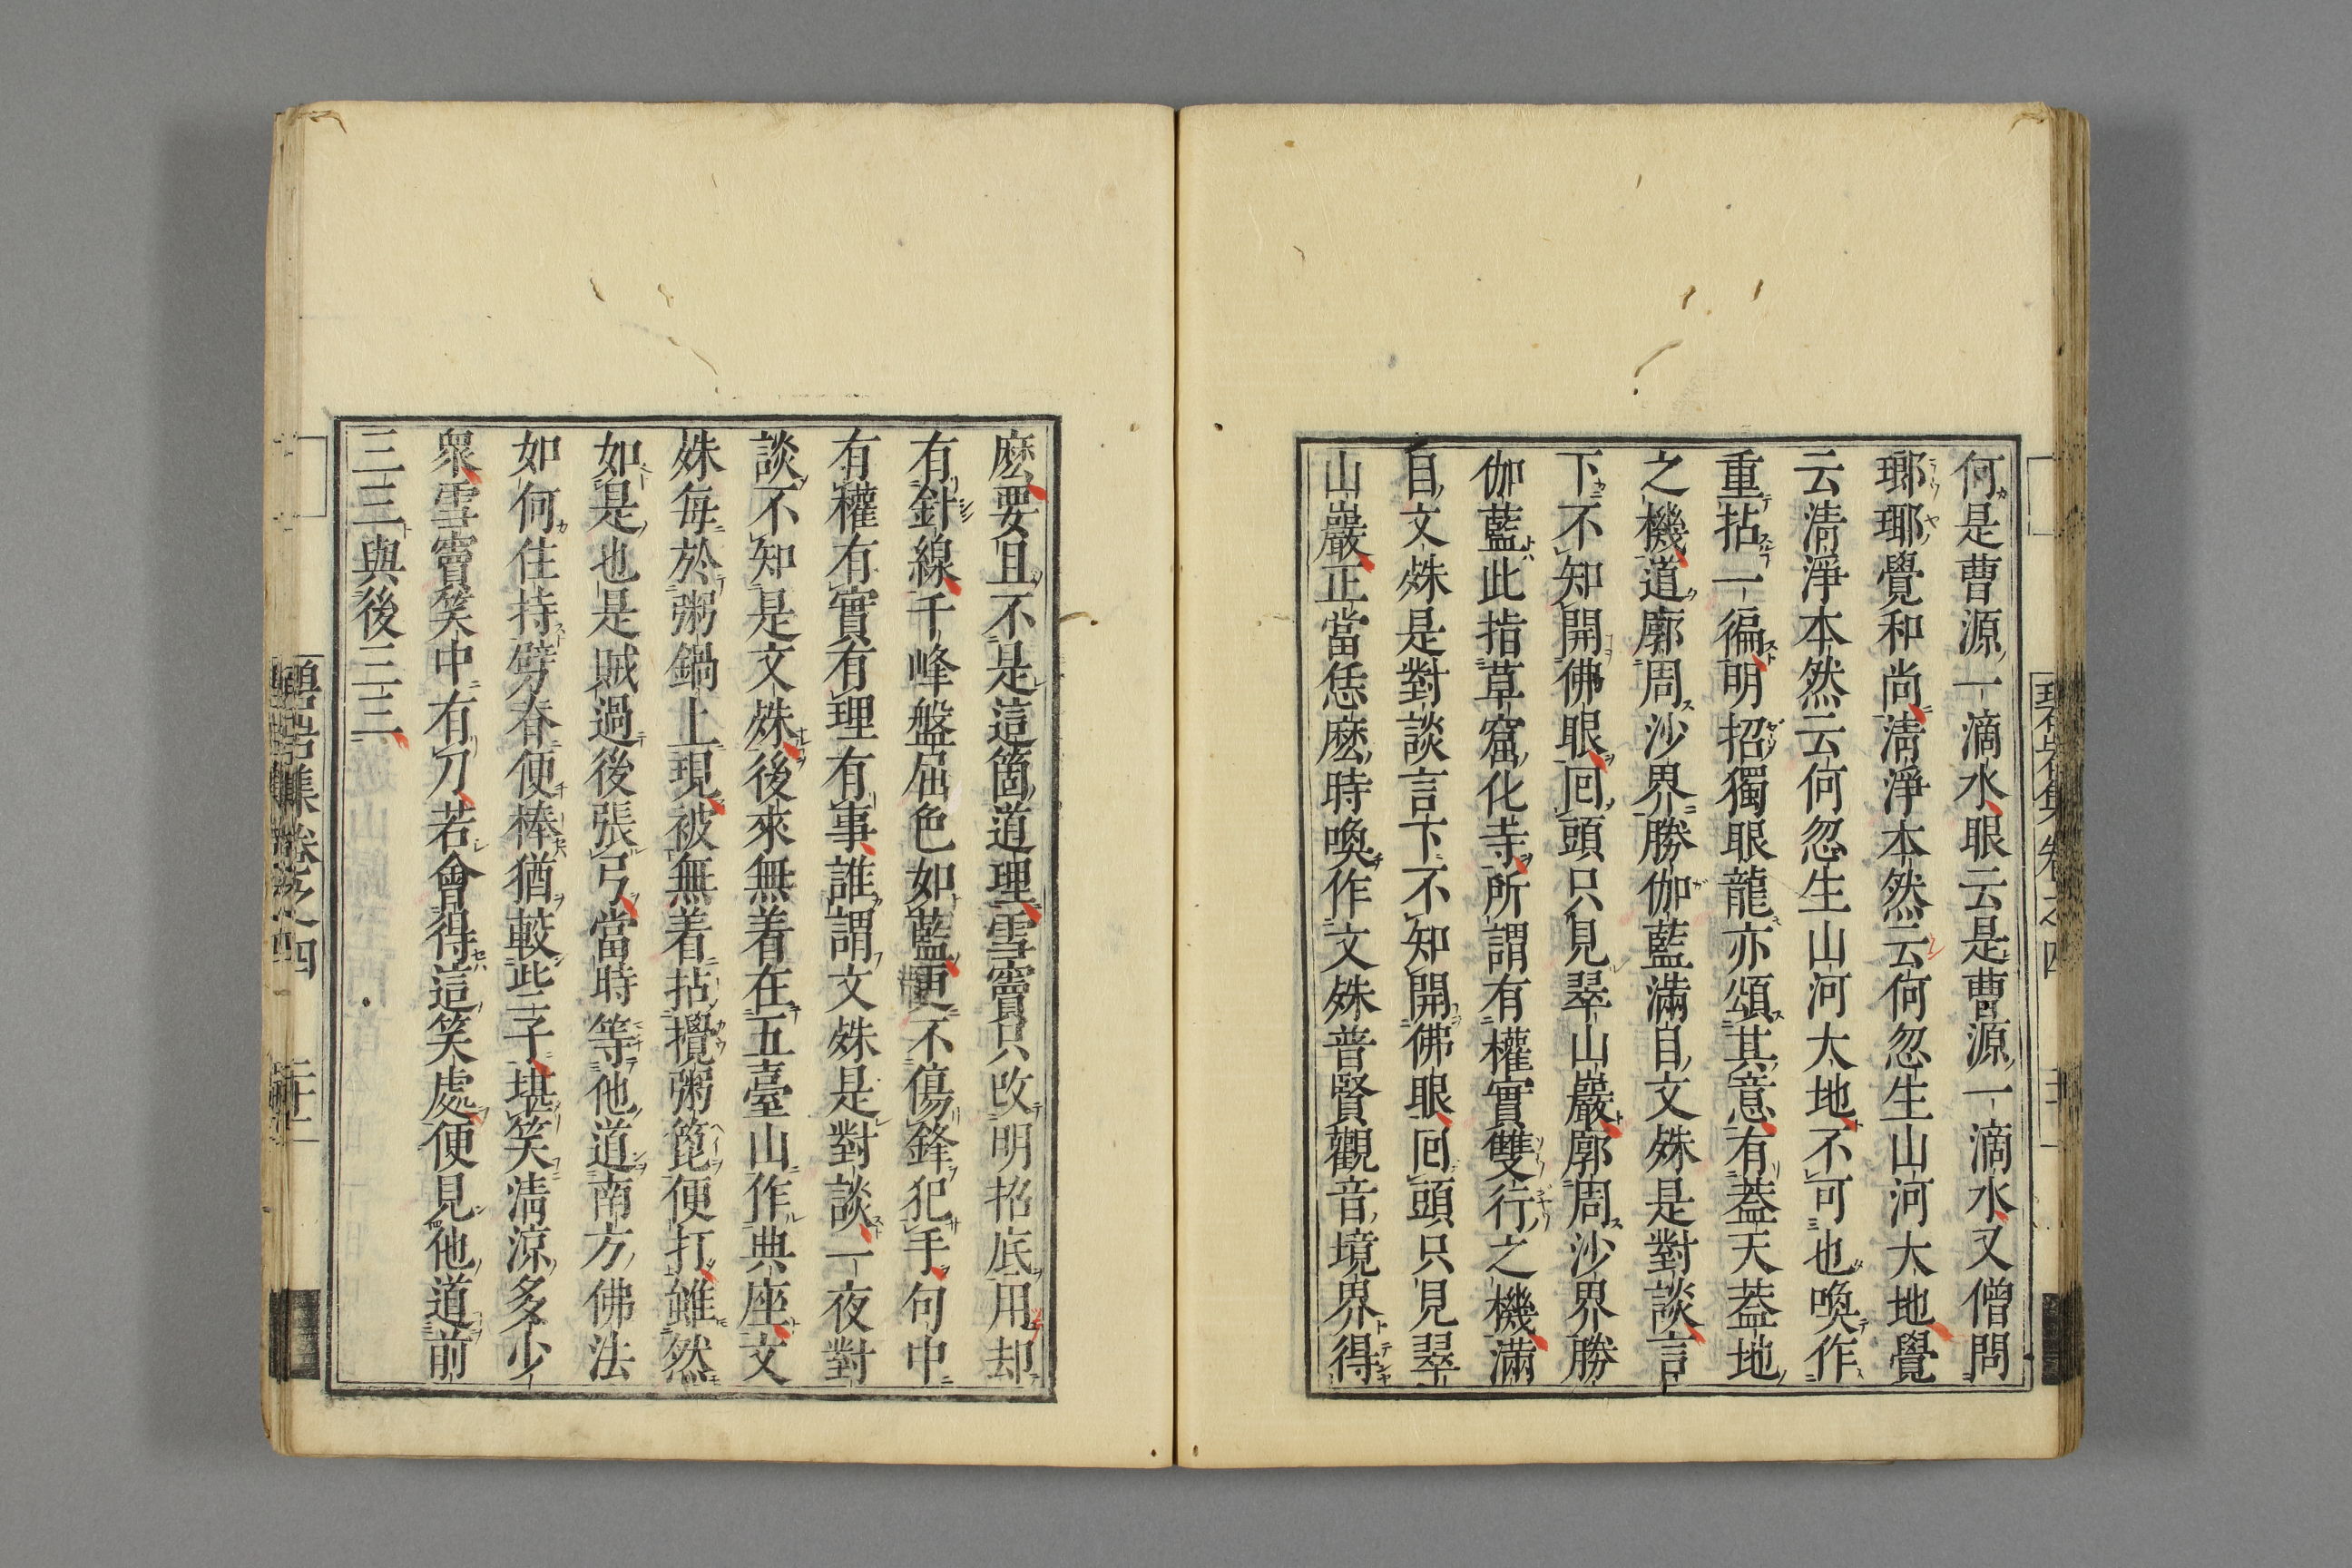 何是曹源一滴水眼云是曹源一滴水又僧問
瑯琊覺和尚淸淨本然云何忽生山河大地覺
云淸淨本然云何忽生山河大地不可也喚作
重拈一徧明招獨眼龍亦頌其意有葢天葢地
之機道廓周沙界勝伽藍滿目文殊是對談言
下不知開佛眼囘頭只見翠山巖廓周沙界勝
伽藍此指草窟化寺所謂有權實雙行之機滿
目文殊是對談言下不知開佛眼囘頭只見翠
山巖正當恁麽時喚作文殊普賢觀音境界得
麽要且不是這箇道理雪竇只改明招底用却
有針線千峰盤屈色如藍更不傷鋒犯手句中
有權有實有理有事誰謂文殊是對談一夜對
談不知是文殊後來無着在五臺山作典座文
殊每於粥鍋上現被無着拈攪粥篦便打雖然
如是也是賊過後張弓當時等他道南方佛法
如何住持劈脊便棒猶較些子堪笑淸涼多少
衆雪竇笑中有刀若會得這笑處便見他道前
三三與後三三
碧岩集卷之四